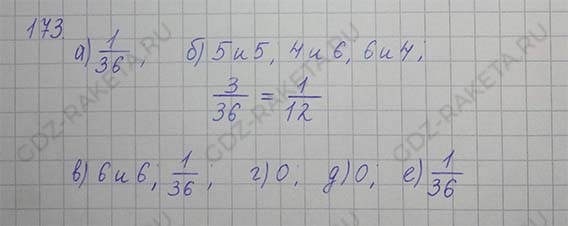 173.
а) 1/36, б) 5 и 5, 4 и 6, 6 и 4;
3/36 = 1/12
в) 6 и 6; 1/36; г) 0; д) 0; е) 1/36
GDZ-RAKETA.RU
GDZ-RAKETA.RU
GDZ-RAKETA.RU